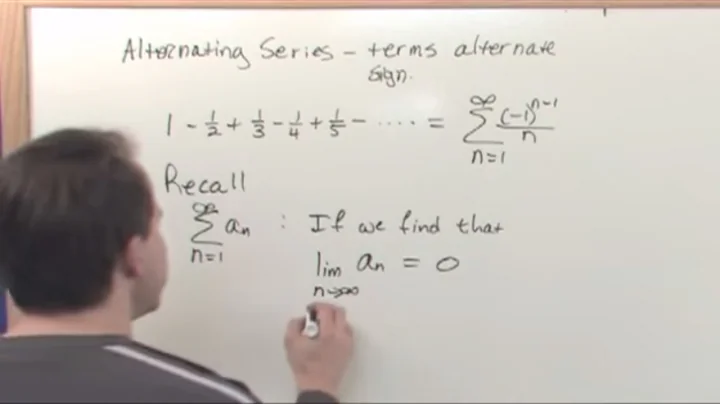 Alternating Series – terms alternate
sign.
1 - 1/2 + 1/3 - 1/4 + 1/5 - .... = ∑_{n=1}^{∞} (-1)^{n-1}/n
Recall
∑_{n=1}^{∞} a_n : If we find that
lim_{n→∞} a_n = 0